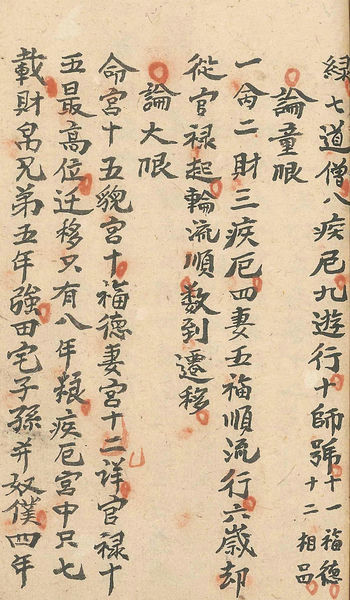 緣七道僧八疾厄九遊行十師號十一福德十二相品
論童限
一命二財三疾厄四妻五福順流行六歲却
從官祿起輪流順数到遷移
論大限
命宮十五貌宮十福德妻宮十二詳官祿十
五最高位迁移只有八年粮疾厄宮中只七
載財帛兄弟五年強田宅子孫并奴僕四年